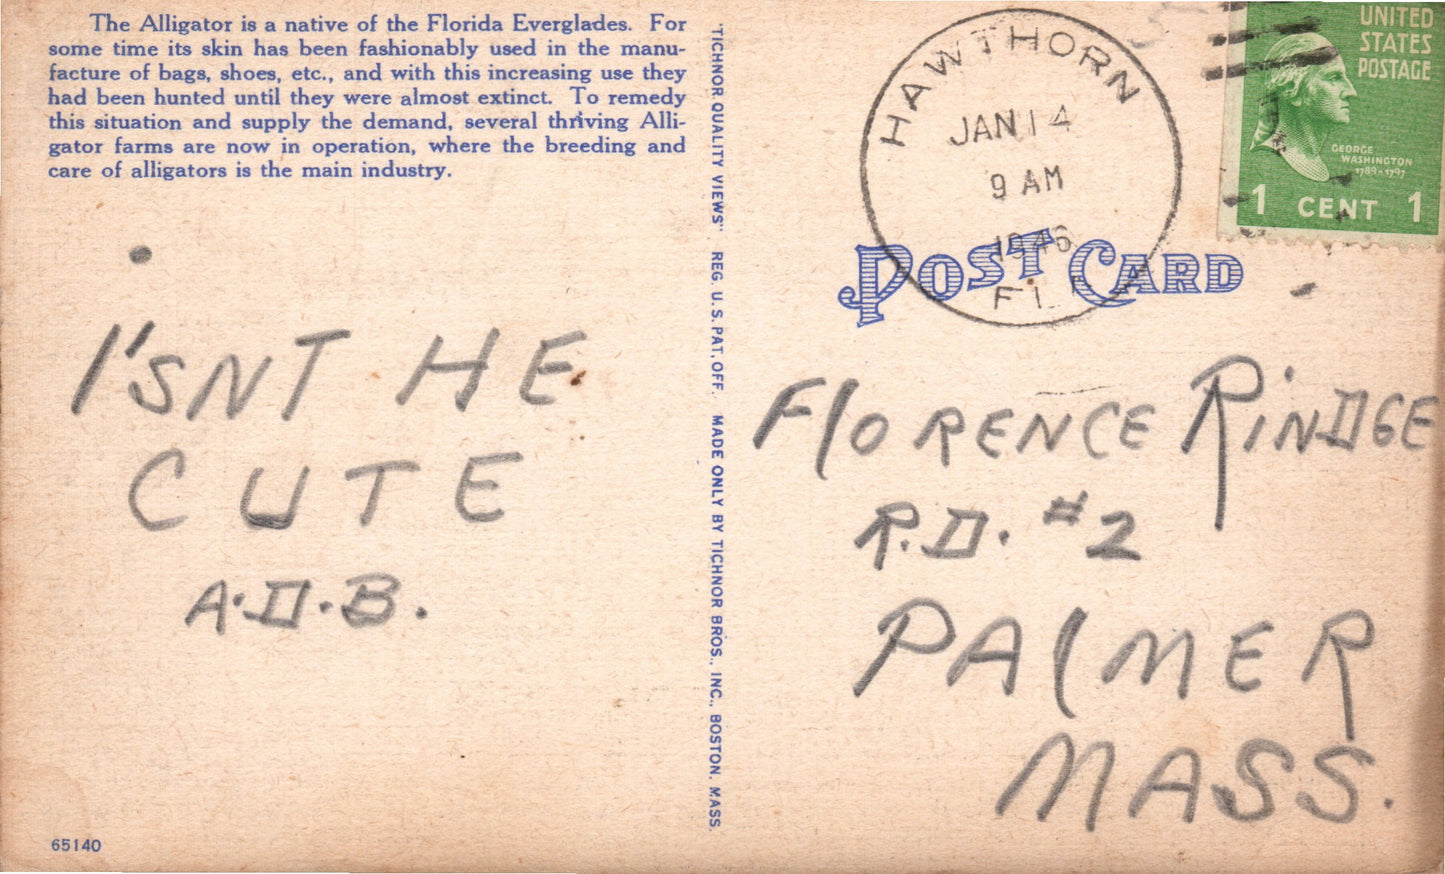 The Alligator is a native of the Florida Everglades. For
some time its skin has been fashionably used in the manu-
facture of bags, shoes, etc., and with this increasing use they
had been hunted until they were almost extinct. To remedy
this situation and supply the demand, several thriving Alli-
gator farms are now in operation, where the breeding and
care of alligators is the main industry.
I'SNT HE
CUTE
A.D.B.
65140
"TICHNOR QUALITY VIEWS" REG. U. S. PAT. OFF. MADE ONLY BY TICHNOR BROS., INC., BOSTON, MASS.
HAWTHORN
JAN 14
9 AM
1946
FLA
UNITED
STATES
POSTAGE
GEORGE
WASHINGTON
1789-1797
1 CENT 1
POST CARD
FlORENCE RiNDGE
R.D. #2
PAlMER
MASS.